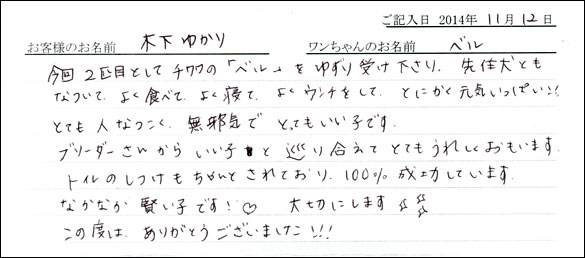 ご記入日 2014年 11月 12日
お客様のお名前 木下 ゆかり ワンちゃんのお名前 ベル
今回 2匹目として チワワの「ベル」を ゆずり受け下さり、先住犬とも
なついて、よく食べて、よく寝て、よくウンチをして、とにかく元気いっぱい!!
とても 人なつこく、無邪気で とってもいい子です。
ブリーダーさんから いい子と 巡り合えて とてもうれしくおもいます。
トイレのしつけも ちゃんとされており、100% 成功しています。
なかなか 賢い子です! ♡ 大切にします
この度は、ありがとうございました!!!